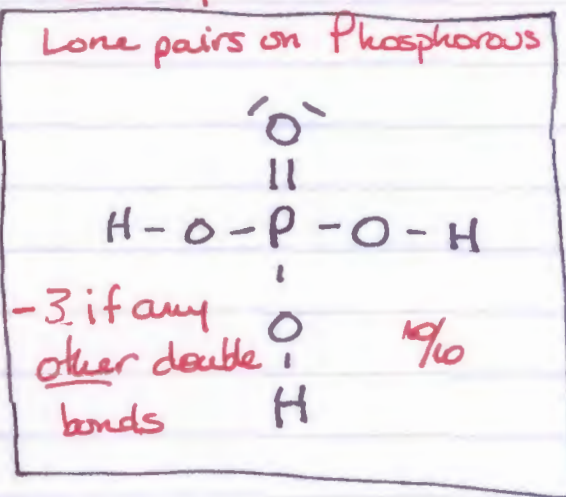 Lone pairs on Phosphorous
O
||
H - O - P - O - H
-3 if any
other double
bonds
O
H
10/10